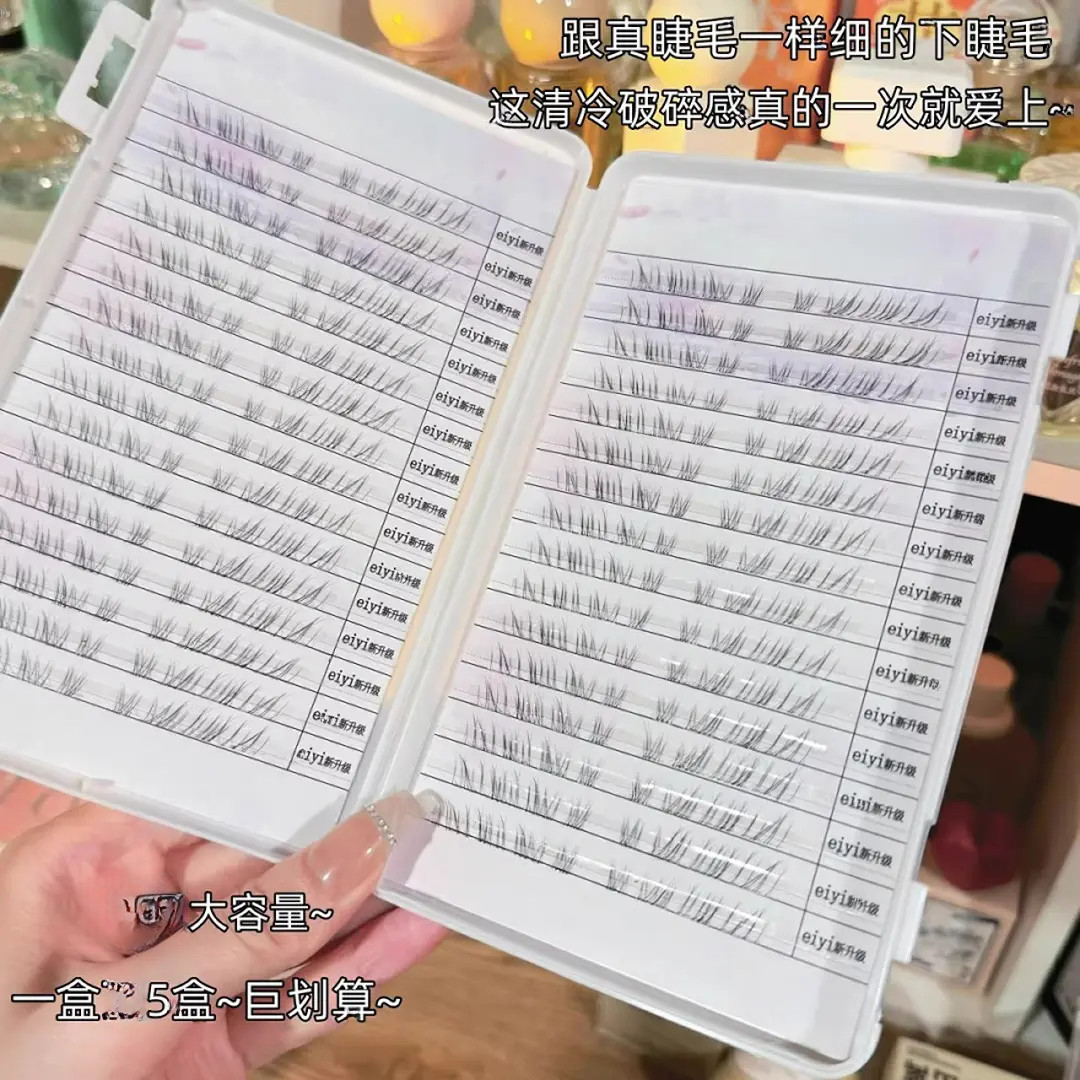 跟真睫毛一样细的下睫毛
这清冷破碎感真的一次就爱上~
eiyi新升级
eiyi新升级
eiyi新升级
eiyi新升级
eiyi新升级
eiyi新升级
eiyi新升级
eiyi新升级
eiyi新升级
eiyi新升级
eiyi
eiyi新升级
eiyi新升级
eiyi新升级
新升级
eiyi新升级
eiyi新升级
eiyi新升级
eiyi新升级
eiyi新升级
eiyi
eiyi新升级
eiyi新升级
eiyi新升级
eiyi新升级
eiyi新升
eiyi新升级
eiyi新升级
新升级
eiyi新升级
eiyi新升级
eiyi新升级
大容量~
一盒 5盒~巨划算~